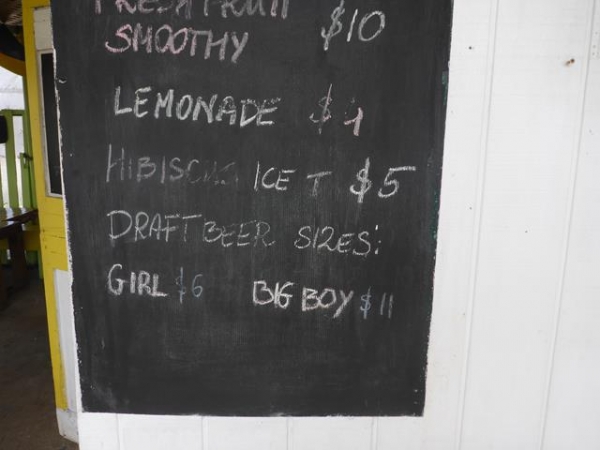 FRESH FRUIT
SMOOTHY $10
LEMONADE $4
HIBISCUS ICE T $5
DRAFT BEER SIZES:
GIRL $6 BIG BOY $11